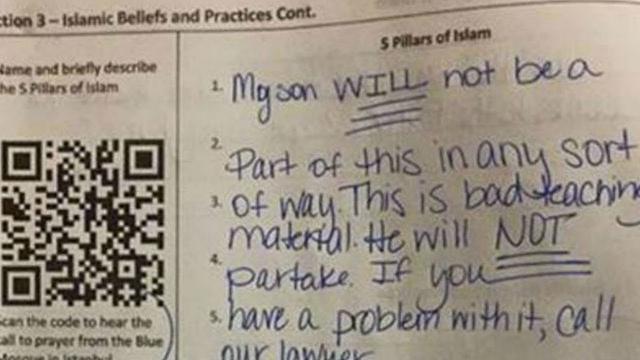 tion 3 – Islamic Beliefs and Practices Cont.
Name and briefly describe
he 5 Pillars of Islam
5 Pillars of Islam
1. My son WILL not be a
2. Part of this in any sort
3. of way. This is bad teaching
material. He will NOT
4. partake. If you
5. have a problem with it, call
our lawyer
Scan the code to hear the
all to prayer from the Blue
Mosque in Istanbul